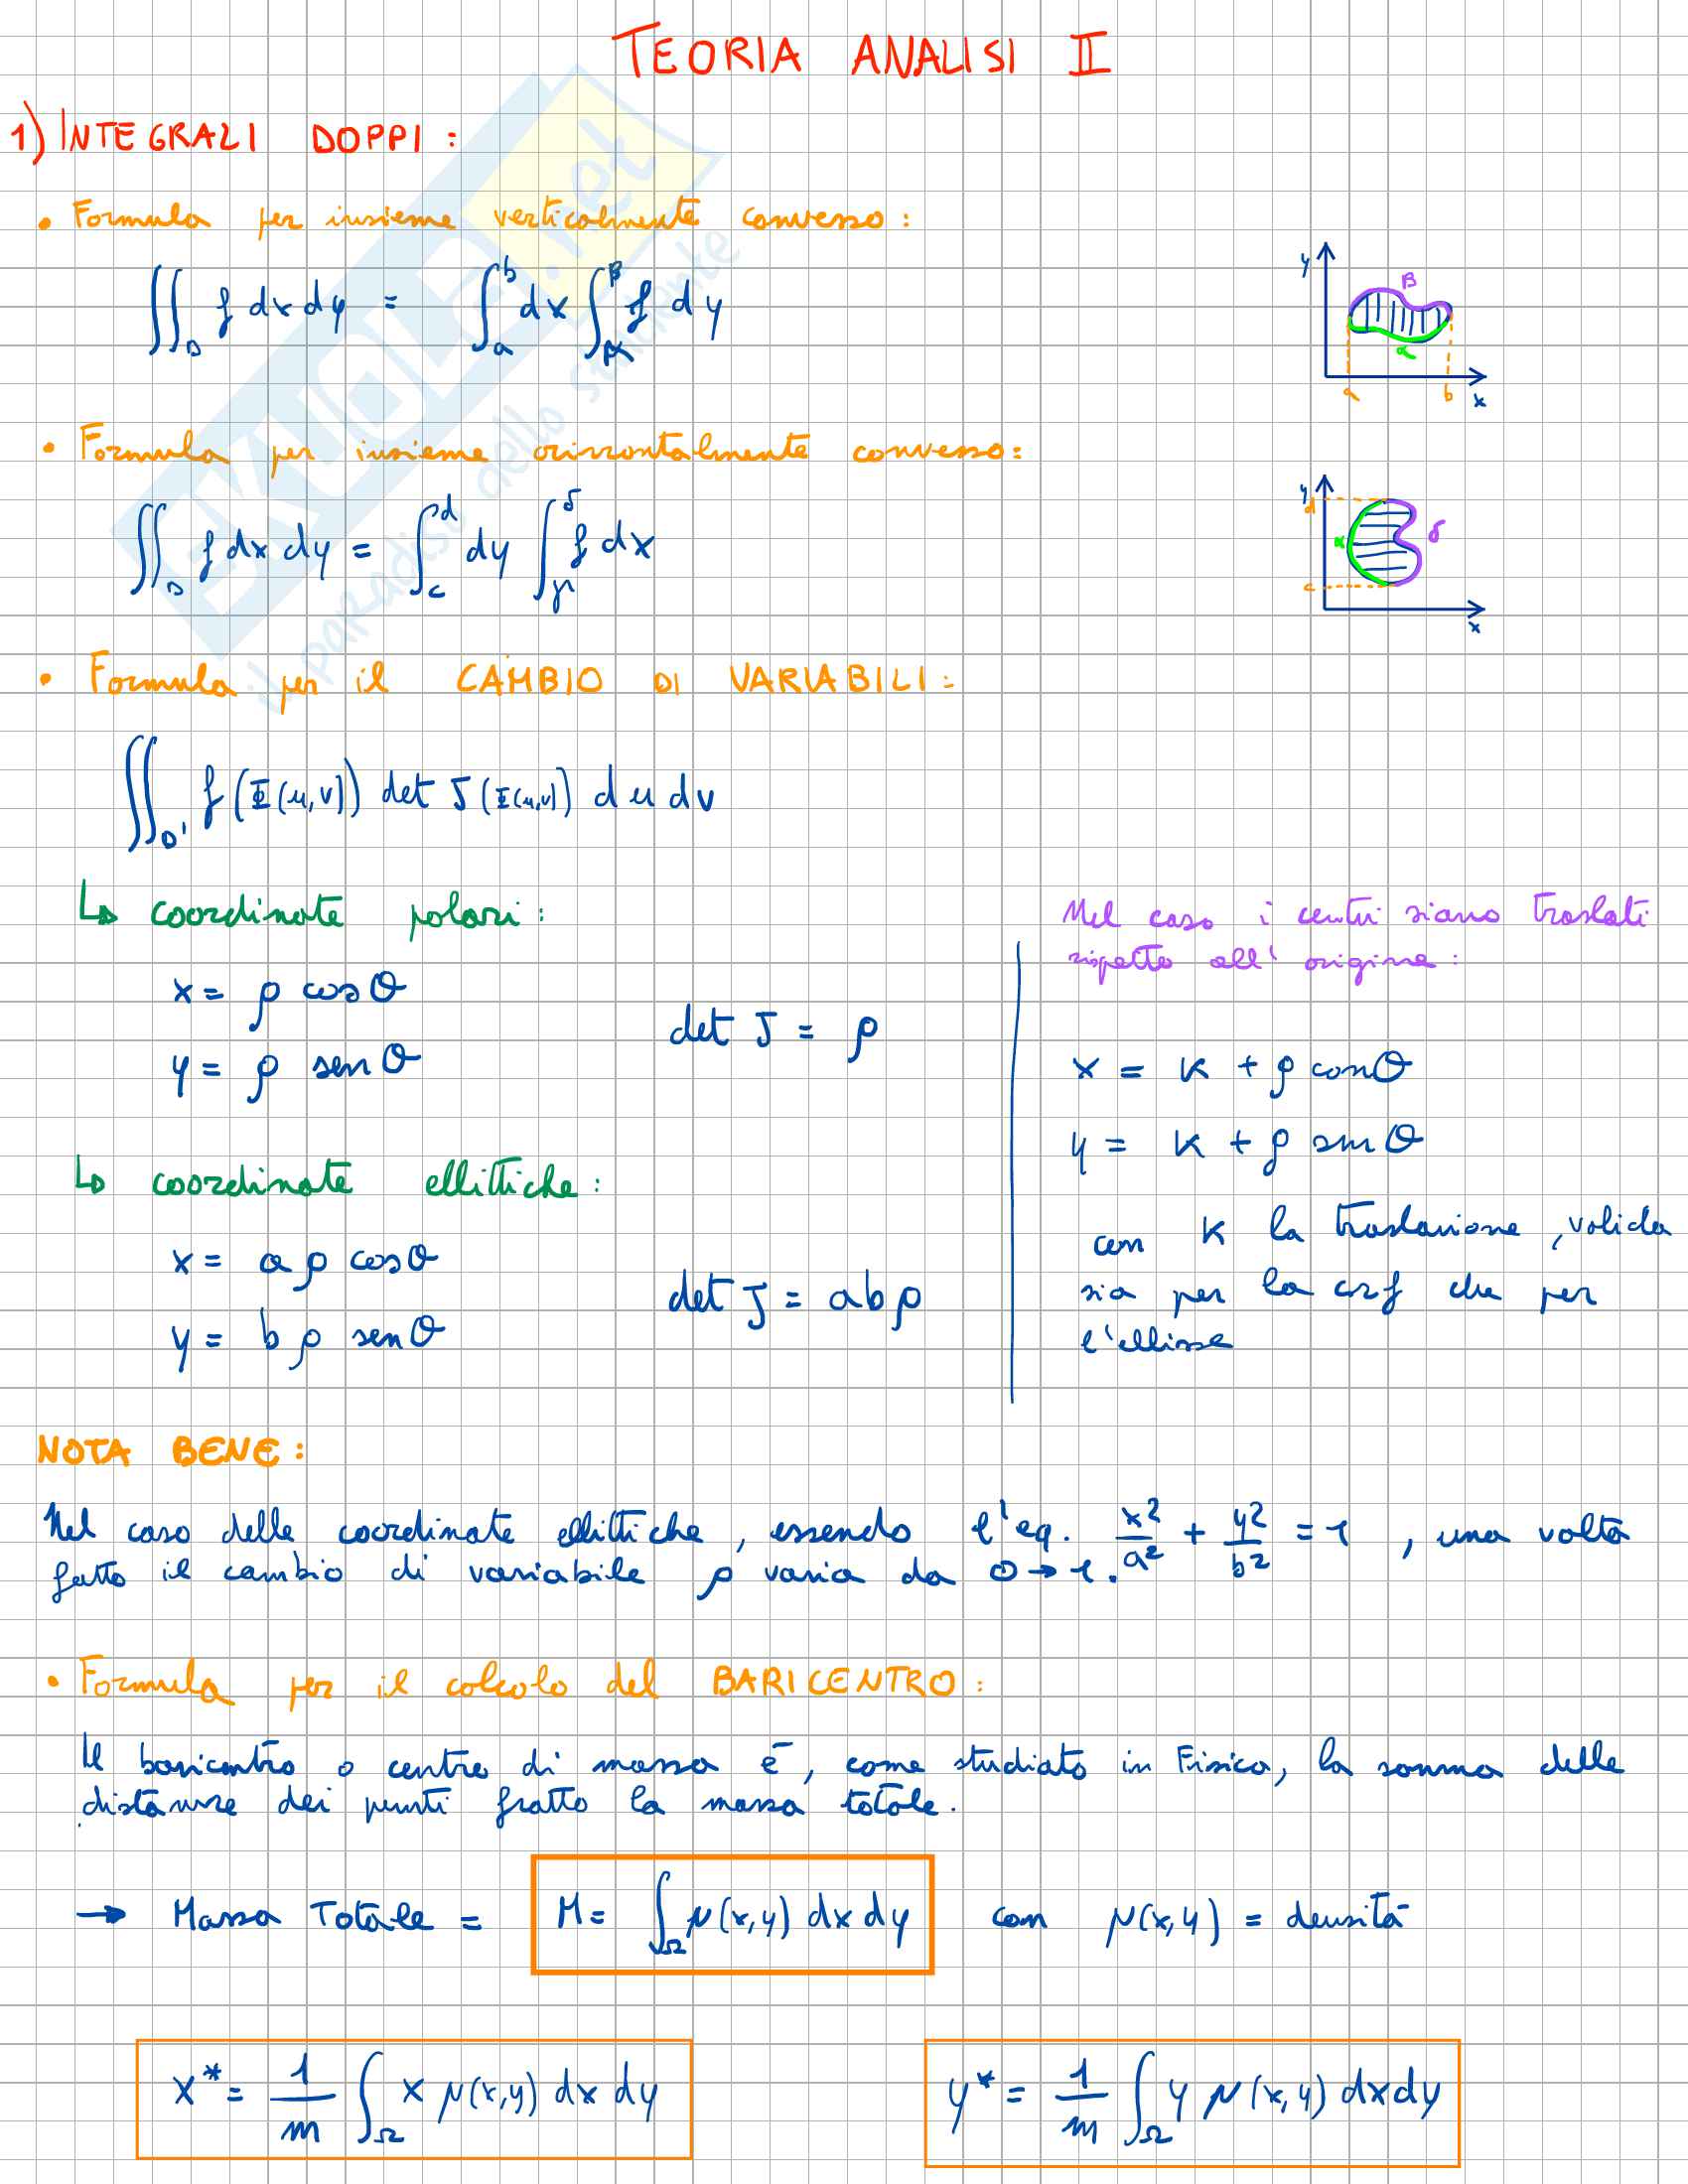 TEORIA ANALISI II
1) INTEGRALI DOPPI:
• Formula per insieme verticalmente convesso:
∬_D f dx dy = ∫_a^b dx ∫_α^β f dy
y β α a b x
• Formula per insieme orizzontalmente convesso:
∬_D f dx dy = ∫_c^d dy ∫_γ^δ f dx
y d α δ c x
• Formula per il CAMBIO DI VARIABILI:
∬_D' f(Φ(u,v)) det J(Φ(u,v)) du dv
↳ coordinate polari:
x = ρ cosθ
y = ρ senθ
det J = ρ
↳ coordinate ellittiche:
x = a ρ cosθ
y = b ρ senθ
det J = abρ
Nel caso i centri siano traslati
rispetto all' origine:
x = K + ρ cosθ
y = K + ρ senθ
con K la traslazione, valida
sia per la crf che per
l'ellisse
NOTA BENE:
Nel caso delle coordinate ellittiche, essendo l'eq. x²/a² + y²/b² = 1, una volta
fatto il cambio di variabile ρ varia da 0 → 1.
• Formula per il calcolo del BARICENTRO:
Il baricentro o centro di massa è, come studiato in Fisica, la somma delle
distanze dei punti fratto la massa totale.
→ Massa Totale = M = ∫_Ω μ(x,y) dx dy con μ(x,y) = densità
x* = 1/m ∫_Ω x μ(x,y) dx dy
y* = 1/m ∫_Ω y μ(x,y) dx dy
SKUOLA.net
il paradiso dello studente